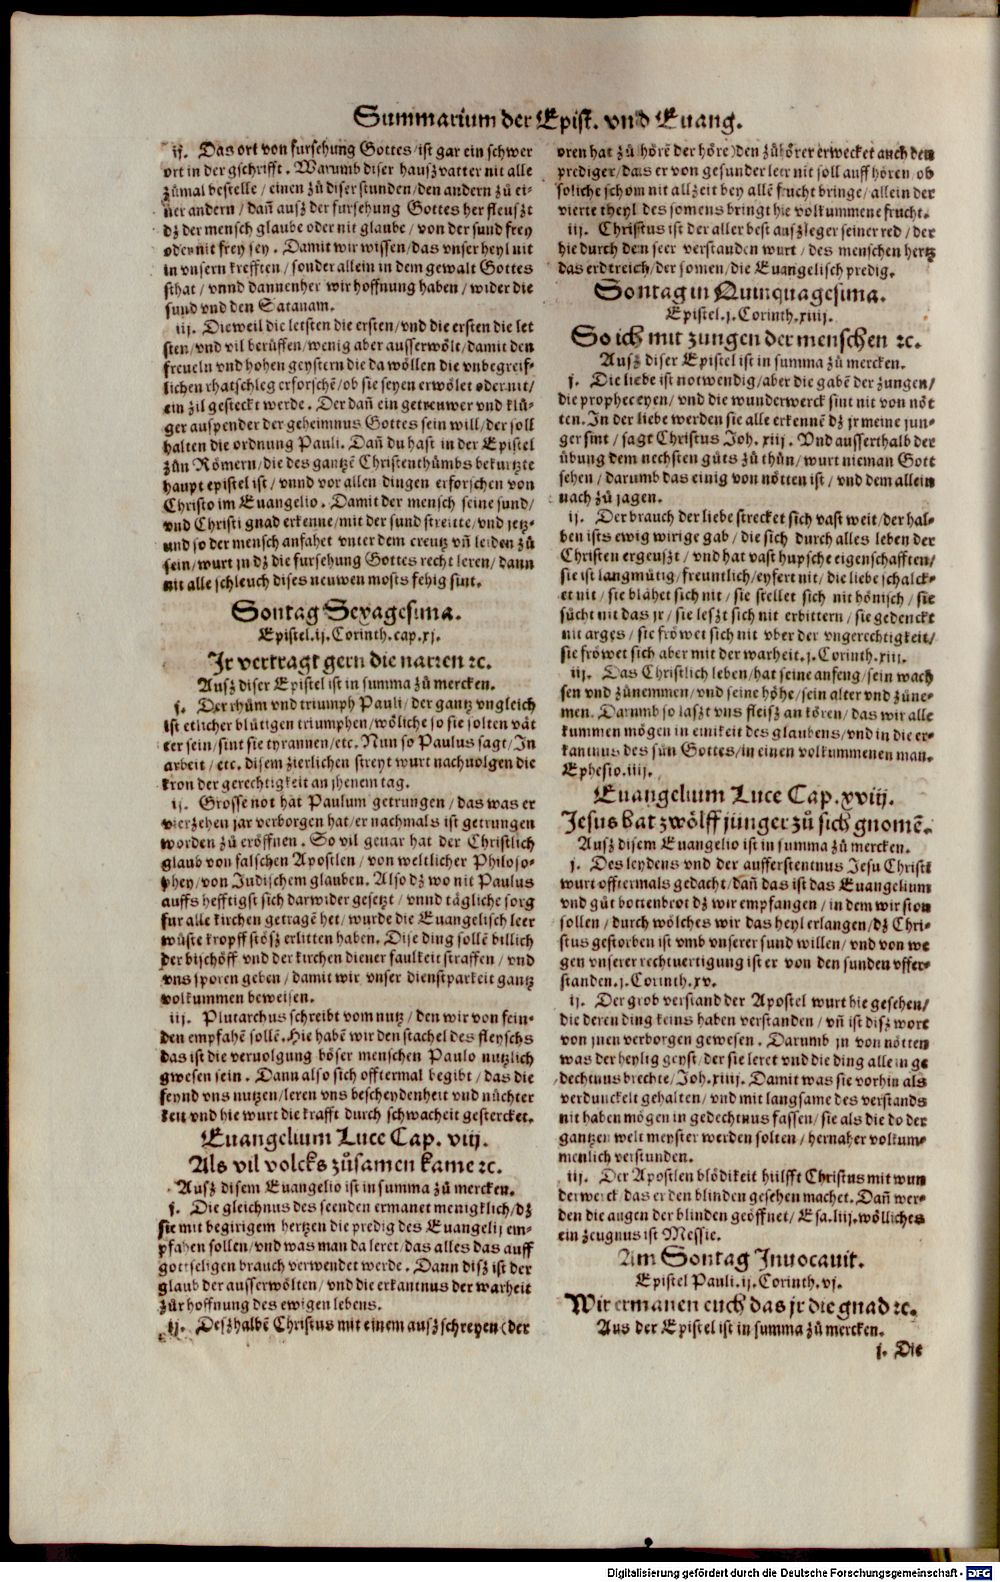 Summarium der Epist. vnd Euang.
ij. Das ort von fursehung Gottes/ist gar ein schwer
ort in der gschrifft. Warumb diser hauszvatter nit alle
zůmal bestelle/einen zů diser stunden/den andern zů ei-
ner andern/dañ ausz der fursehung Gottes her fleuszt
dz der mensch glaube oder nit glaube/von der sund frey
oder nit frey sey. Damit wir wissen/das vnser heyl nit
in vnsern krefften/sonder allein in dem gewalt Gottes
sthat/vnnd dannenher wir hoffnung haben/wider die
sund vnd den Satanam.
iij. Dieweil die letsten die ersten/vnd die ersten die let
sten/vnd vil berüffen/wenig aber ausserwölt/damit den
freueln vnd hohen geystern die da wöllen die vnbegreif-
lichen rhatschleg erforschẽ/ob sie seyen erwölet oder nit/
ein zil gesteckt werde. Der dañ ein getreuwer vnd klů-
ger auspender der geheimnus Gottes sein will/der soll
halten die ordnung Pauli. Dañ du hast in der Epistel
zůn Römern/die des gantzẽ Christenthůmbs bekurtzte
haupt epistel ist/vnnd vor allen dingen erforschen von
Christo im Euangelio. Damit der mensch seine sund/
vnd Christi gnad erkenne/mit der sund streitte/vnd jetz-
und so der mensch anfahet vnter dem creutz vñ leiden zů
sein/wurt jn dz die fursehung Gottes recht leren/dann
nit alle schleuch dises neuwen mosts fehig sint.
Sontag Sexagesima.
Epistel.ij.Corinth.cap.xj.
Jr vertragt gern die narren ⁊c.
Ausz diser Epistel ist in summa zů mercken.
j. Der rhům vnd triumph Pauli/der gantz vngleich
ist etlicher blůtigen triumphen/wöliche so sie solten vät
ter sein/sint sie tyrannen/etc. Nun so Paulus sagt/In
arbeit/etc. disem zierlichen streyt wurt nachuolgen die
kron der gerechtigkeit an jhenem tag.
ij. Grosse not hat Paulum getrungen/das was er
vierzehen jar verborgen hat/er nachmals ist getrungen
worden zů eröffnen. So vil geuar hat der Christlich
glaub von falschen Apostlen/von weltlicher Philoso-
phey/von Judischem glauben. Also dz wo nit Paulus
auffs hefftigst sich darwider gesetzt/vnnd tägliche sorg
fur alle kirchen getragẽ het/wurde die Euangelisch leer
wůste kropff stösz erlitten haben. Dise ding sollẽ billich
der bischöff vnd der kirchen diener faulkeit straffen/vnd
vns sporen geben/damit wir vnser dienstparkeit gantz
volkummen beweisen.
iij. Plutarchus schreibt vom nutz/den wir von fein-
den empfahẽ sollẽ. Hie habẽ wir den stachel des fleyschs
das ist die veruolgung böser menschen Paulo nutzlich
gwesen sein. Dann also sich offtermal begibt/das die
feynd vns nutzen/leren vns bescheydenheit vnd nüchter
keit vnd hie wurt die krafft durch schwacheit gestercket.
Euangelium Luce Cap. viij.
Als vil volcks zůsamen kame ⁊c.
Ausz disem Euangelio ist in summa zů mercken.
j. Die gleichnus des seenden ermanet menigklich/dz
sie mit begirigem hertzen die predig des Euangelij em-
pfahen sollen/vnd was man da leret/das alles das auff
gottseligen brauch verwendet werde. Dann disz ist der
glaub der ausserwölten/vnd die erkantnus der warheit
zůr hoffnung des ewigen lebens.
ij. Deszhalbẽ Christus mit einem ausz schreyen (der
oren hat zů hörẽ der höre) den zůhörer erwecket auch den
prediger/das er von gesunder leer nit soll auff hören/ob
soliche schom nit allzeit bey allẽ frucht bringe/allein der
vierte theyl des somens bringt hie volkummene frucht.
iij. Christus ist der aller best auszleger seiner red/der
hie durch den seer verstanden wurt/des menschen hertz
das erdtreich/der somen/die Euangelisch predig.
Sontag in Quinquagesima.
Epistel.j.Corinth.xiij.
So ich mit zungen der menschen ⁊c.
Ausz diser Epistel ist in summa zů mercken.
j. Die liebe ist notwendig/aber die gabẽ der zungen/
die propheceyen/vnd die wunderwerck sint nit von nöt
ten. In der liebe werden sie alle erkennẽ dz jr meine jun-
ger sint/sagt Christus Joh.xiij. Vnd ausserthalb der
übung dem nechsten gůts zů thůn/wurt nieman Gott
sehen/darumb das einig von nötten ist/vnd dem allein
nach zů jagen.
ij. Der brauch der liebe strecket sich vast weit/der hal-
ben ists ewig wirige gab/die sich durch alles leben der
Christen ergeuszt/vnd hat vast hupsche eigenschafften/
sie ist langmůtig/freuntlich/eyfert nit/die liebe schalck-
et nit/sie blähet sich nit/sie stellet sich nit hönisch/sie
sůcht nit das jr/sie leszt sich nit erbittern/sie gedenckt
nit arges/sie fröwet sich nit vber der vngerechtigkeit/
sie fröwet sich aber mit der warheit.j.Corinth.xiij.
iij. Das Christlich leben/hat seine anfeng/sein wach
sen vnd zůnemmen/vnd seine höhe/sein alter vnd zůne-
men. Darumb so laszt vns fleisz an kören/das wir alle
kummen mögen in einikeit des glaubens/vnd in die er-
kantnus des sůn Gottes/in einen volkummenen man.
Ephesio.iiij.
Euangelium Luce Cap.xviij.
Jesus hat zwölff jünger zů sich gnomẽ.
Ausz disem Euangelio ist in summa zů mercken.
j. Des leydens vnd der aufferstentnus Jesu Christi
wurt offtermals gedacht/dañ das ist das Euangelium
vnd gůt bottenbrot dz wir empfangen/in dem wir ston
sollen/durch wölches wir das heyl erlangen/dz Chri-
stus gestorben ist vmb vnserer sund willen/vnd von we
gen vnserer rechtuertigung ist er von den sunden vffer-
standen.j.Corinth.xv.
ij. Der grob verstand der Apostel wurt hie gesehen/
die deren ding keins haben verstanden/vñ ist disz wort
von jnen verborgen gewesen. Darumb jn von nötten
was der heylig geyst/der sie leret vnd die ding allein ge
dechtnus brechte/Joh.xiiij. Damit was sie vorhin als
verdunckelt gehalten/vnd mit langsame des verstands
nit haben mögen in gedechtnus fassen/sie als die do der
gantzen welt meyster werden solten/hernaher volkum-
menlich verstunden.
iij. Der Apostlen blödikeit hilfft Christus mit wun
derwerck/das er den blinden gesehen machet. Dañ wer-
den die augen der blinden geöffnet/Esa.liij.wölliches
ein zeugnus ist Messie.
Am Sontag Inuocauit.
Epistel Pauli.ij.Corinth.vj.
Wir ermanen euch das jr die gnad ⁊c.
Aus der Epistel ist in summa zů mercken.
j. Die
Digitalisierung gefördert durch die Deutsche Forschungsgemeinschaft - DFG